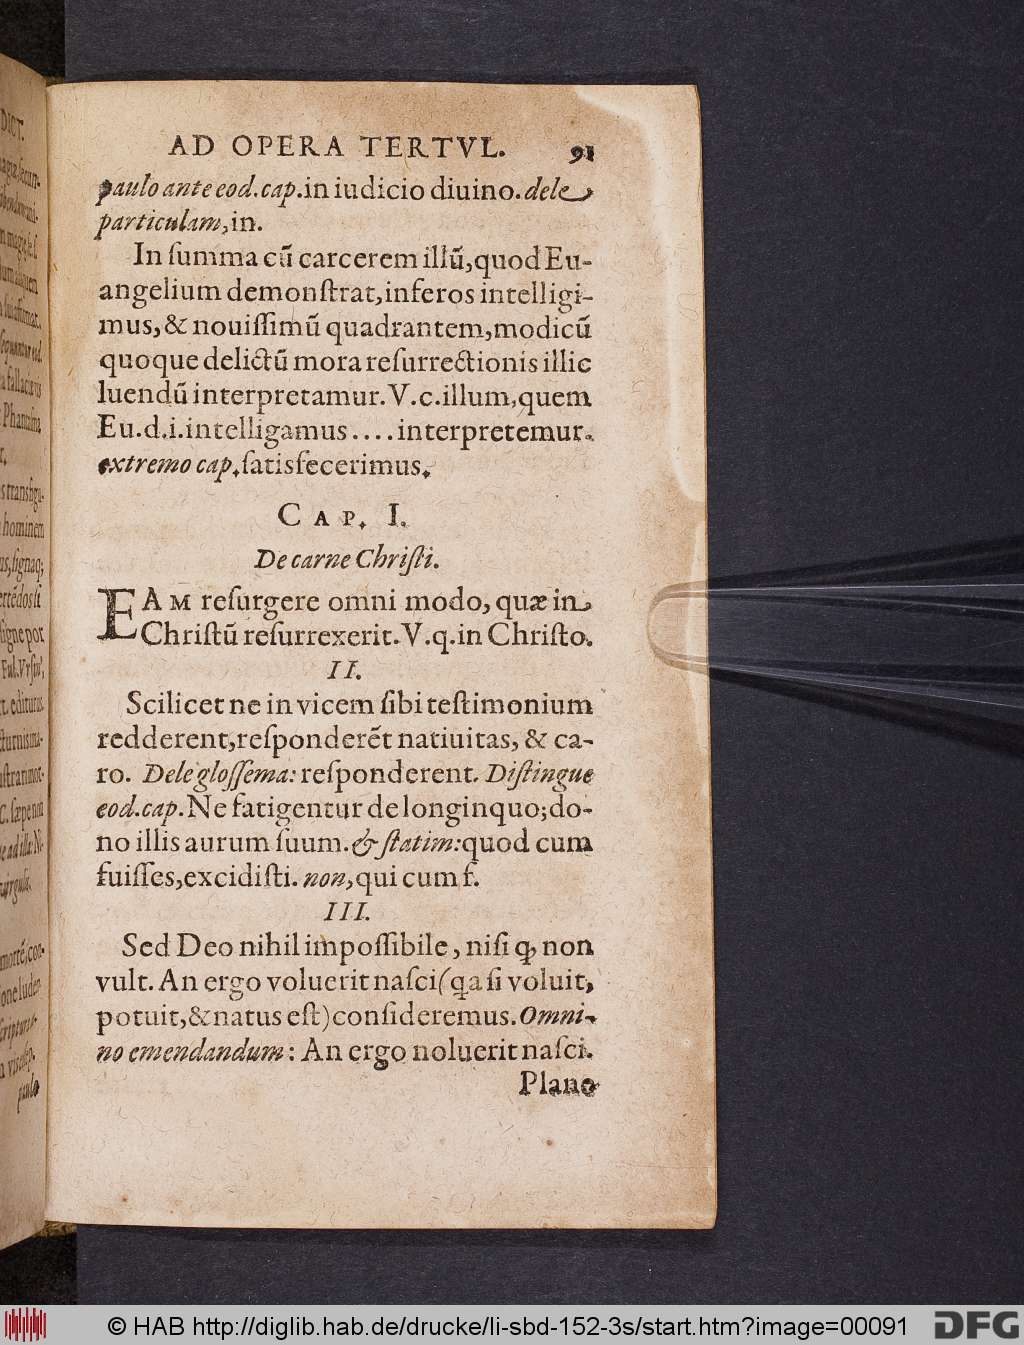 AD OPERA TERTVL. 91
paulo ante eod. cap. in iudicio diuino. dele
particulam, in.
In ſumma cū carcerem illū, quod Eu-
angelium demonſtrat, inferos intelligi-
mus, & nouiſſimū quadrantem, modicū
quoque delictū mora reſurrectionis illic
luendū interpretamur. V. c. illum, quem
Eu. d. i. intelligamus .... interpretemur.
extremo cap. ſatisfecerimus.
CAP. I.
De carne Chriſti.
EAM reſurgere omni modo, quæ in
Chriſtū reſurrexerit. V. q. in Chriſto.
II.
Scilicet ne in vicem ſibi teſtimonium
redderent, reſponderēt natiuitas, & ca-
ro. Dele gloſſema: reſponderent. Diſtingue
eod. cap. Ne fatigentur de longinquo; do-
no illis aurum ſuum. & ſtatim: quod cum
fuiſſes, excidiſti. non, qui cum f.
III.
Sed Deo nihil impoſſibile, niſi ꝙ non
vult. An ergo voluerit naſci (qa ſi voluit,
potuit, & natus eſt) conſideremus. Omni-
no emendandum: An ergo noluerit naſci.
Plane
DICT.
hominem
paulo
© HAB http://diglib.hab.de/drucke/li-sbd-152-3s/start.htm?image=00091
DFG